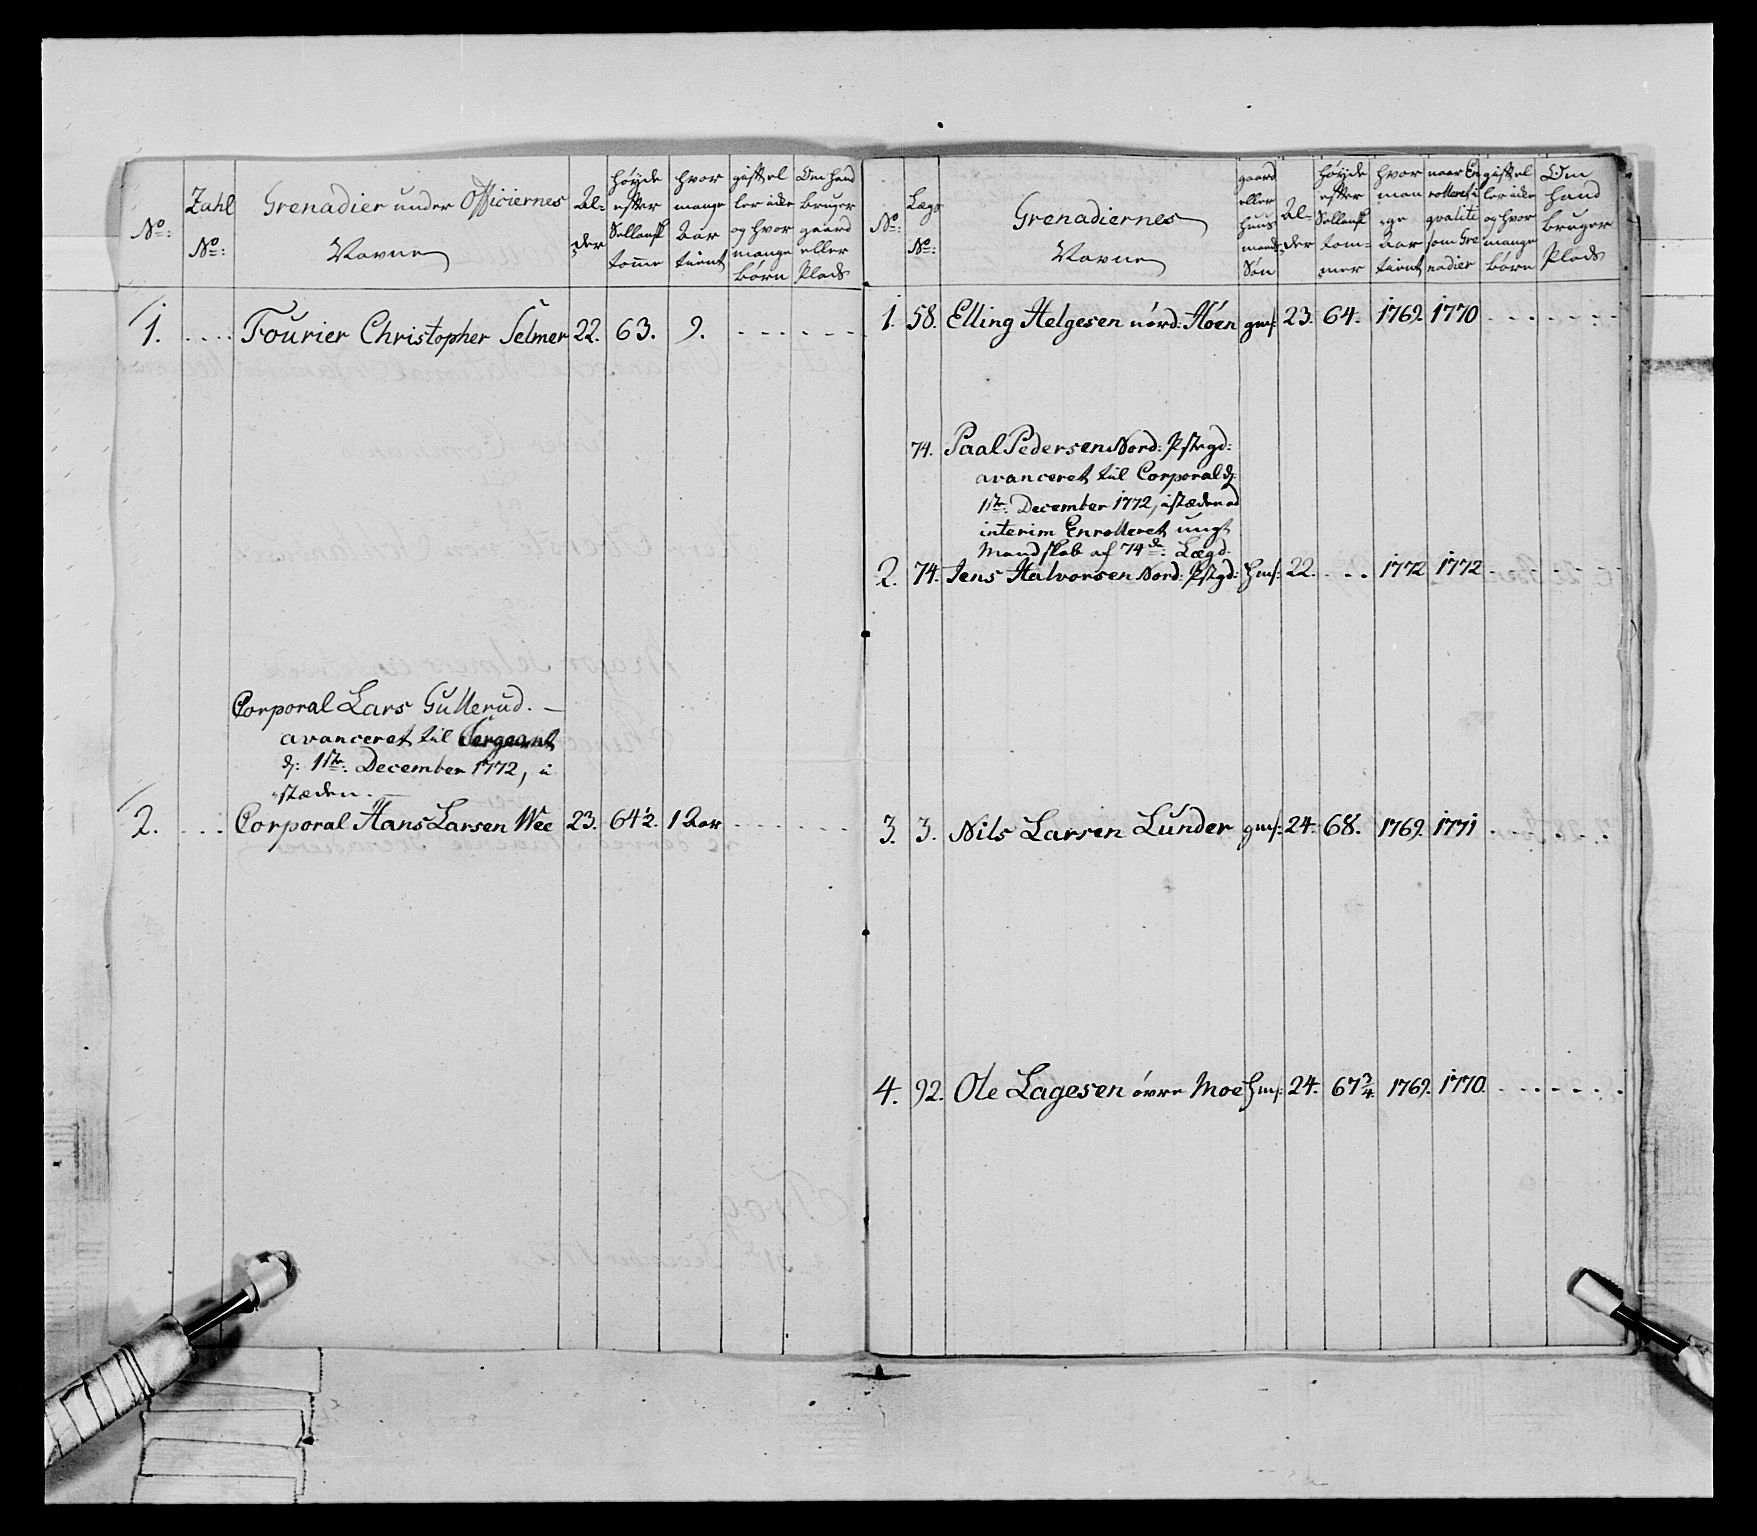 No:
Zahl No:
Grenadier under Officiernes Navne
Alder
høyde efter Sellansk tomme
hvor mange Aar tient
gift el ler icke og hvor mange børn
Om hand bruger gaard eller Plads
1. .... Fourier Christopher Selmer 22. 63. 9. - - - - - -
Corporal Lars Gullerud. —
avanceret til Sergeant
d: 1ste: December 1772, i
stæden. —
2. ... Corporal Hans Larsen Wee 23. 64½. 1 Aar - - - - - -
No:
Lægs No:
Grenadiernes Navne
gaard eller huus mands Søn
Alder
høyde efter Sellansk tommer
hvor man ge Aar tient
naar En rolleret i qvalite som Gre nadier
gift el ler icke og hvor mange børn
Om hand bruger Plads
1. 58. Elling Helgesen nórd: Höen gms: 23. 64. 1769. 1770 - - - - - -
74. Paal Pedersen Nord: Pstegd:
avanceret til Corporal d:
1ste: December 1772, istæden ad
interim Enrolleret ungt
Mandskab af 74de: Lægd.
2. 74. Jens Halvorsen Nord: Pstgd: hms: 22. ... 1772 1772 - - -
3. 3. Nils Larsen Lunder gms: 24. 68. 1769. 1771 - - - -
4. 92. Ole Lagesen óvre Moe hms: 24. 67¾. 1769. 1770. - - - - - -